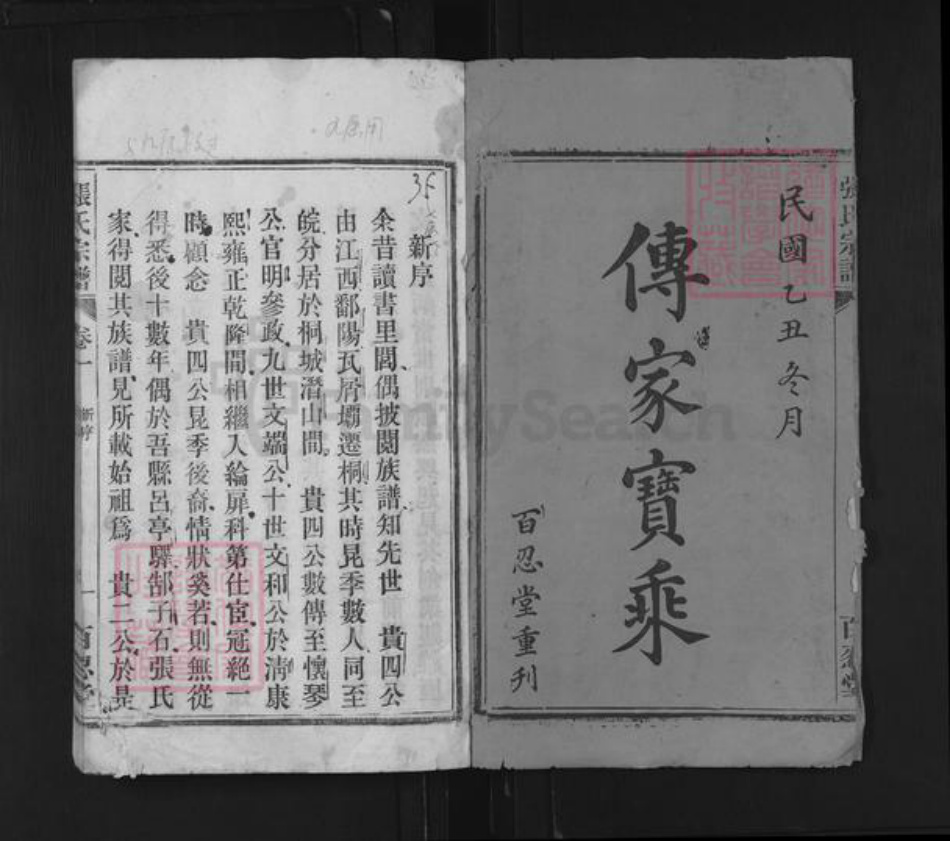 民國乙丑冬月
傳家寶乘
百忍堂重刋
張氏宗譜
百忍堂
新序
余昔讀書里閭偶披閱族譜知先世 貴四公
由江西鄱陽瓦屑壩遷桐其時昆季數人同至
皖分居於桐城潛山間 貴四公數傳至懷琴
公官明參政九世文端公十世文和公於清康
熙雍正乾隆間相繼入綸扉科第仕宦冠絶一
時顧念 貴四公昆季後裔情狀奚若則無從
得悉後十數年偶於吾縣呂亭驛郜子石張氏
家得閱其族譜見所載始祖爲 貴二公於是
張氏宗譜
卷一
新序
一
百忍堂
FamilySearch